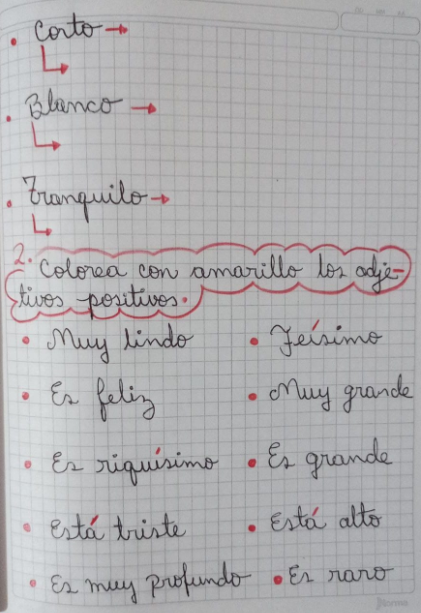 • Corto →
• Blanco →
• Tranquilo →
2. Colorea con amarillo los adje-
tivos positivos.
• Muy lindo • Feísimo
• Es feliz • Muy grande
• Es riquísimo • Es grande
• Está triste • Está alto
• Es muy profundo • Es raro
norma